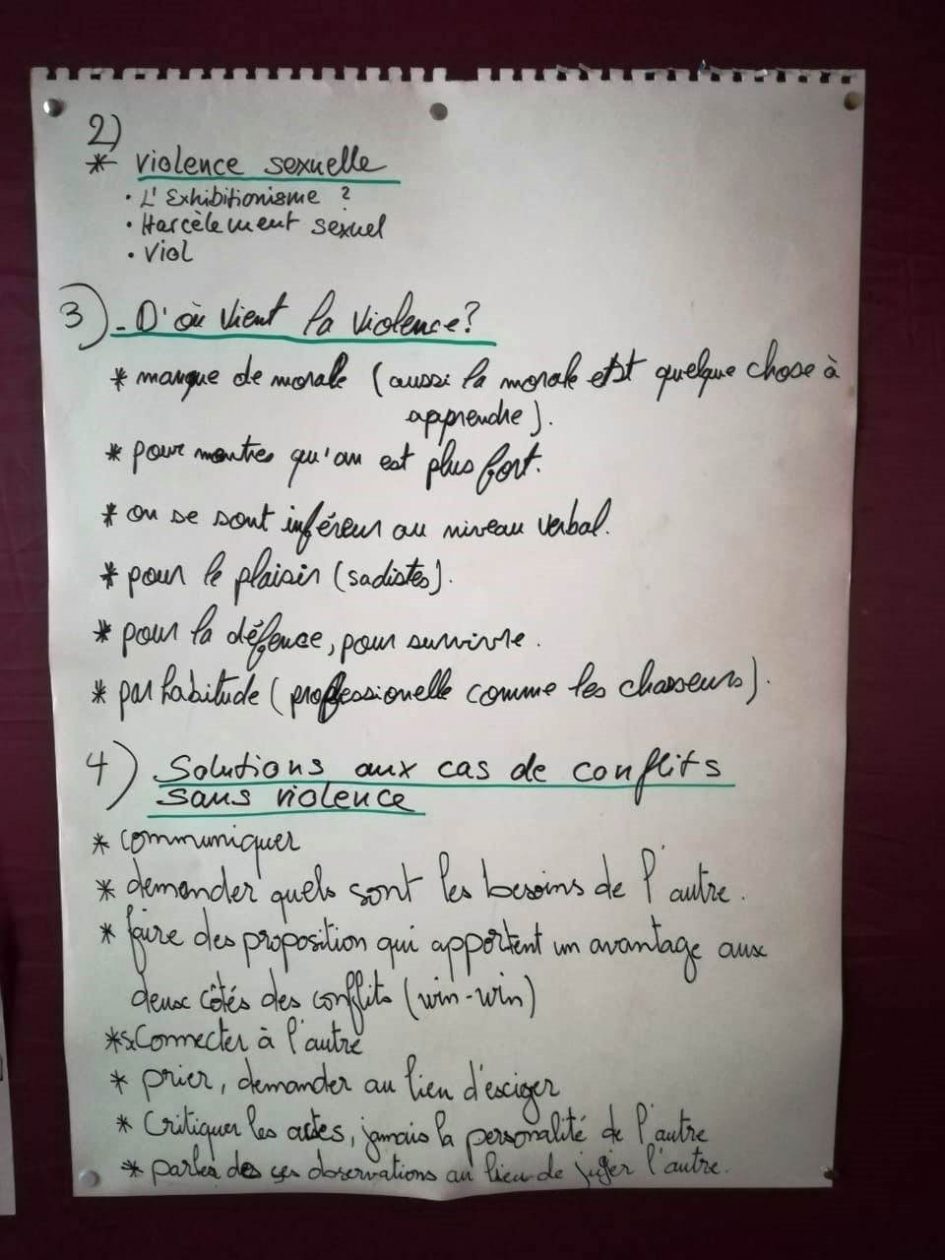 2)
* violence sexuelle
• L'Exhibitionisme ?
• Harcèlement sexuel
• Viol
3) - D'où vient la violence?
* manque de morale (aussi la morale est quelque chose à
apprendre).
* pour montrer qu'on est plus fort.
* on se sont inféreur au niveau verbal.
* pour le plaisir (sadistes).
* pour la défence, pour survivre.
* par habitude (professionelle comme les chasseurs).
4) Solutions aux cas de conflits
sans violence
* communiquer
* demander quels sont les besoins de l'autre.
* faire des proposition qui apportent un avantage aux
deux côtés des conflits (win-win)
* se Connecter à l'autre
* prier, demander au lieu d'esciger
* Critiquer les actes, jamais la personalité de l'autre
* parler de ces observations au lieu de juger l'autre.